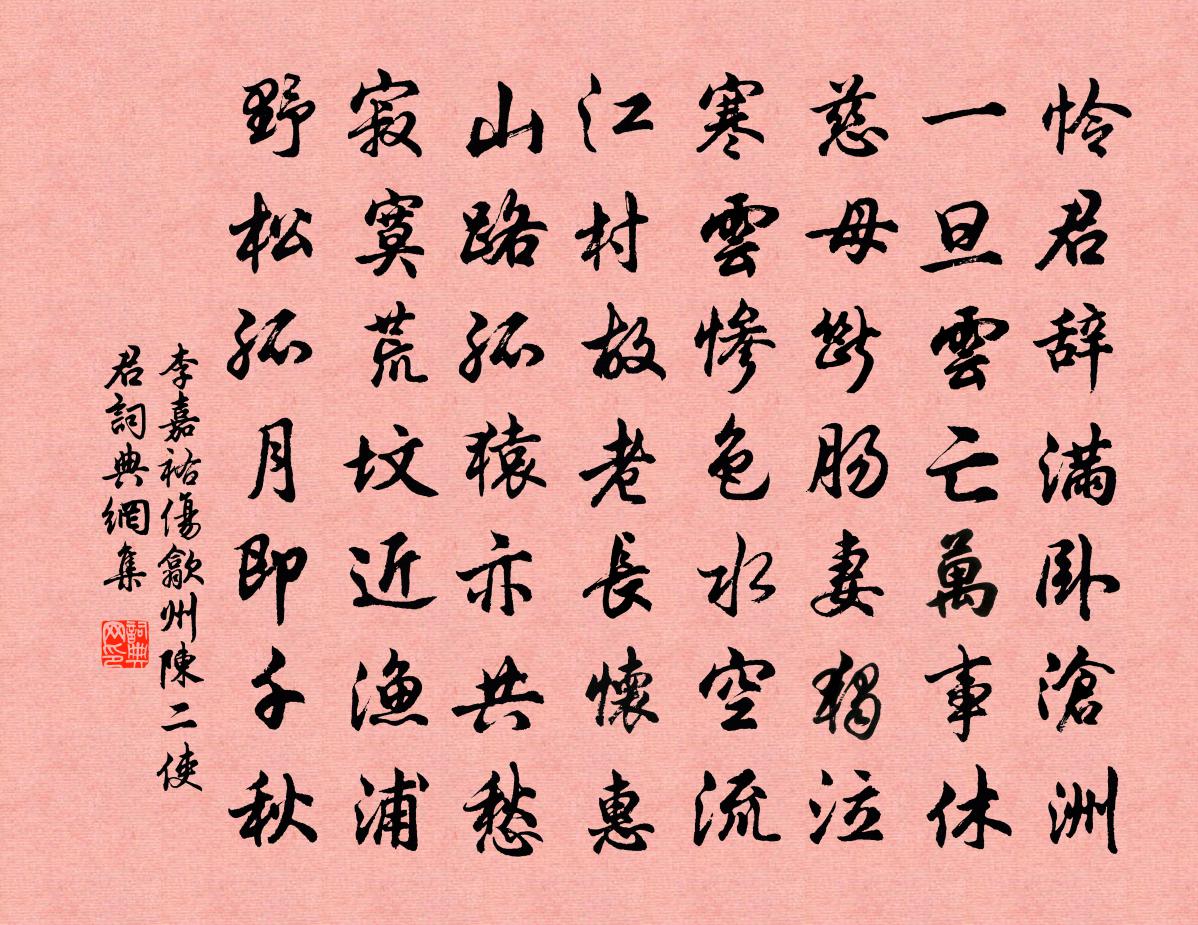 怜君辞满卧滄洲
一旦雲亡萬事休
慈母断肠妻独泣
寒雲惨色水空流
江村故老長懷惠
山路孤猿亦共愁
寂寞荒坟近渔浦
野松孤月即千秋
李嘉祐傷歙州陳二使
君詞典網集
詞典
网印